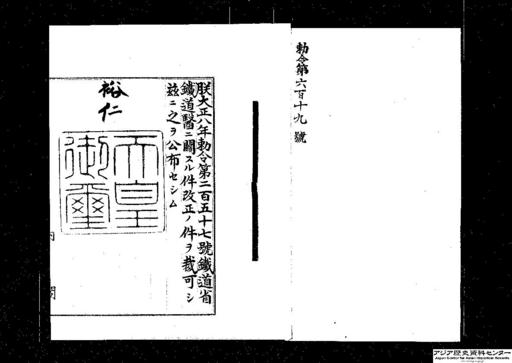 勅令第六百十九號
朕大正八年勅令第二百五十七號鐵道省
鐵道醫ニ關スル件改正ノ件ヲ裁可シ
茲ニ之ヲ公布セシム
裕仁
天皇
御璽
内
閣
アジア歴史資料センター
Japan Center for Asian Historical Records